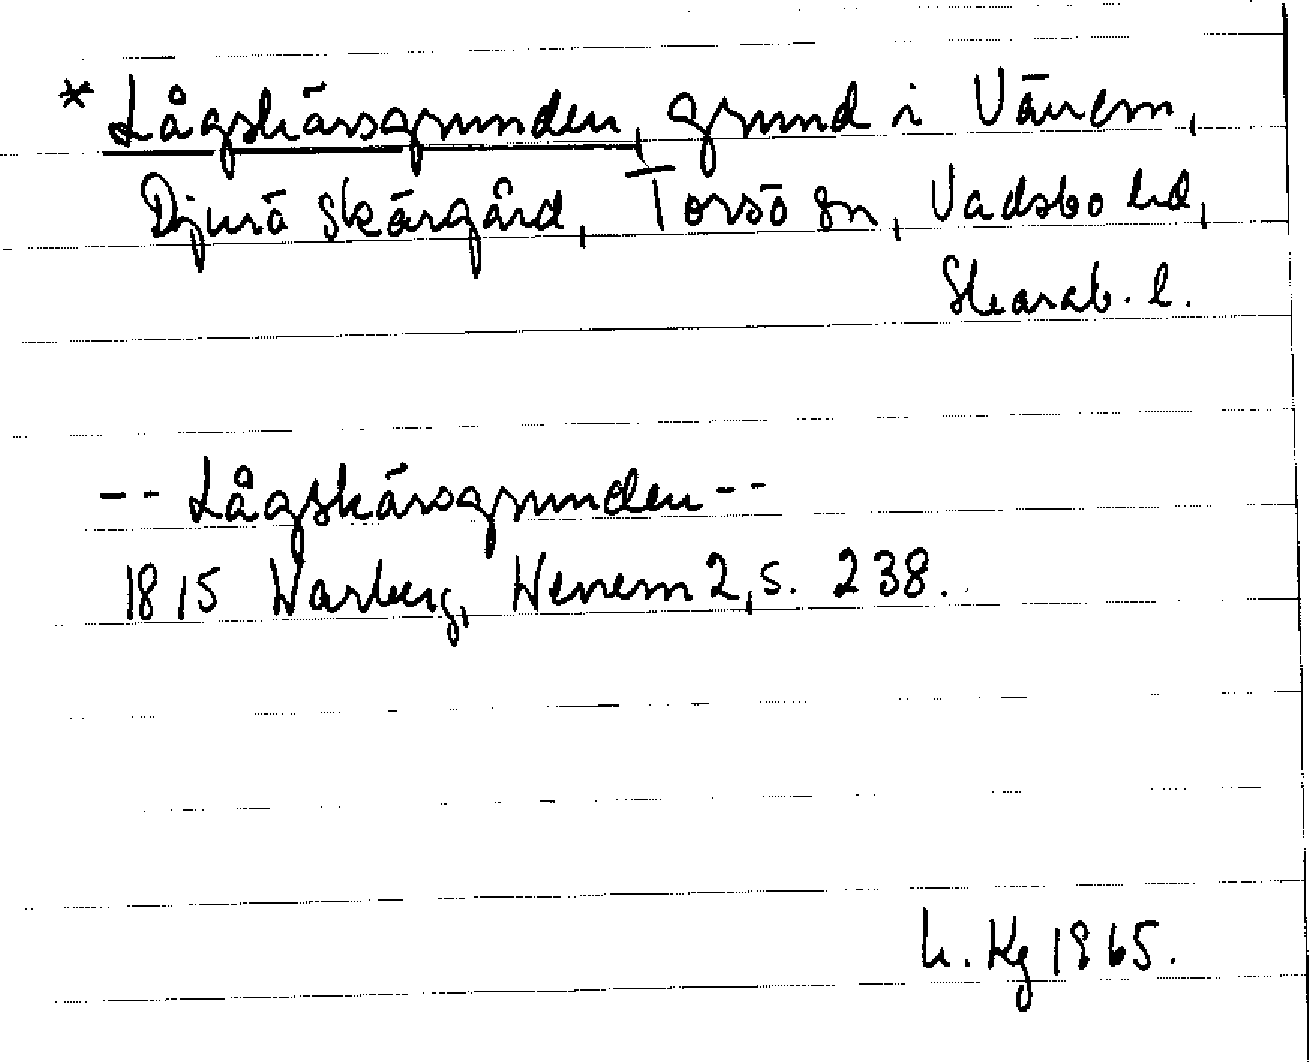 * Lågskärsgrunden, grund i Vänern,
Djurö skärgård, Torsö sn, Vadsbo hd,
Skarab. l.
-- Lågskärsgrunden --
1815 Warberg, Wenern 2, s. 238.
Kg 1965.